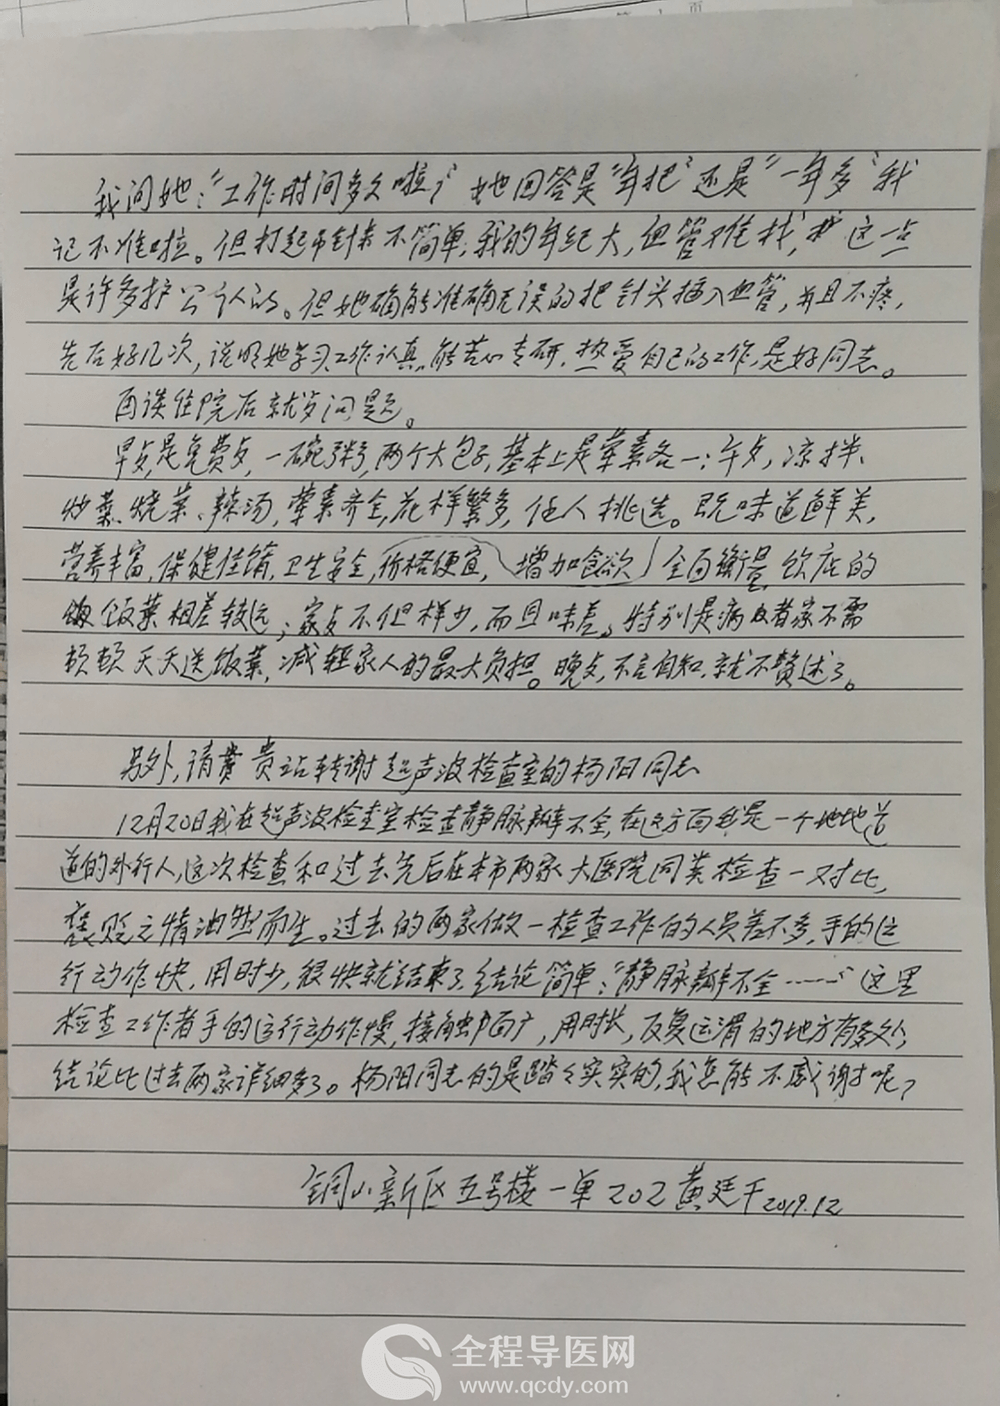 我问她："工作时间多久啦？"她回答是"年把"还是"一年多"我
记不准啦。但打起吊针来不简单，我的年纪大，血管难找，这一点
是许多护公认的。但她确能准确无误的把针头插入血管，并且不疼，
先后好几次，说明她学习、工作认真，能苦心专研，热爱自己的工作，是好同志。
再谈住院后就歺问题。
早歺是免费歺，一碗粥，两个大包子，基本上是荤素各一；午歺，凉拌、
炒菜、烧菜、辣汤，荤素齐全，花样繁多，任人挑选。既味道鲜美，
营养丰富，保健佳肴，卫生安全，价格便宜，增加食欲，全面衡量，饮店的
饭菜相差较远；家歺不但样少，而且味差。特别是病者家不需
顿顿天天送饭菜，减轻家人的最大负担。晚歺，不言自知，就不赘述了。
另外，请贵站转谢超声波检查室的杨阳同志
12月20日我在超声波检查室检查静脉瓣不全，在这方面我是一个地地道
道的外行人，这次检查和过去先后在本市两家大医院同类检查一对比，
褒贬之情油然而生。过去的两家做一检查工作的人员差不多，手的运
行动作快，用时少，很快就结束了，结论简单："静脉瓣不全……"这里
检查工作者手的运行动作慢，接触面广，用时长，反复运滑的地方有多处，
结论比过去两家详细多了。杨阳同志的是踏踏实实的，我怎能不感谢呢？
铜山新区五号楼一单202黄廷千2019.12
全程导医网
www.qcdy.com